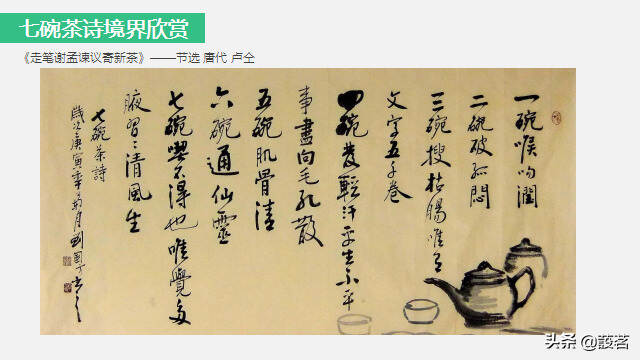 七碗茶诗境界欣赏
《走笔谢孟谏议寄新茶》——节选 唐代 卢仝
一碗喉吻潤
二碗破孤悶
三碗搜枯腸唯有
文字五千卷
四碗發輕汗平生不平
事盡向毛孔散
五碗肌骨清
六碗通仙靈
七碗喫不得也唯覺兩
腋習〻清風生
七碗茶詩
歲次庚寅年 月劉國
头条 @蔎茗